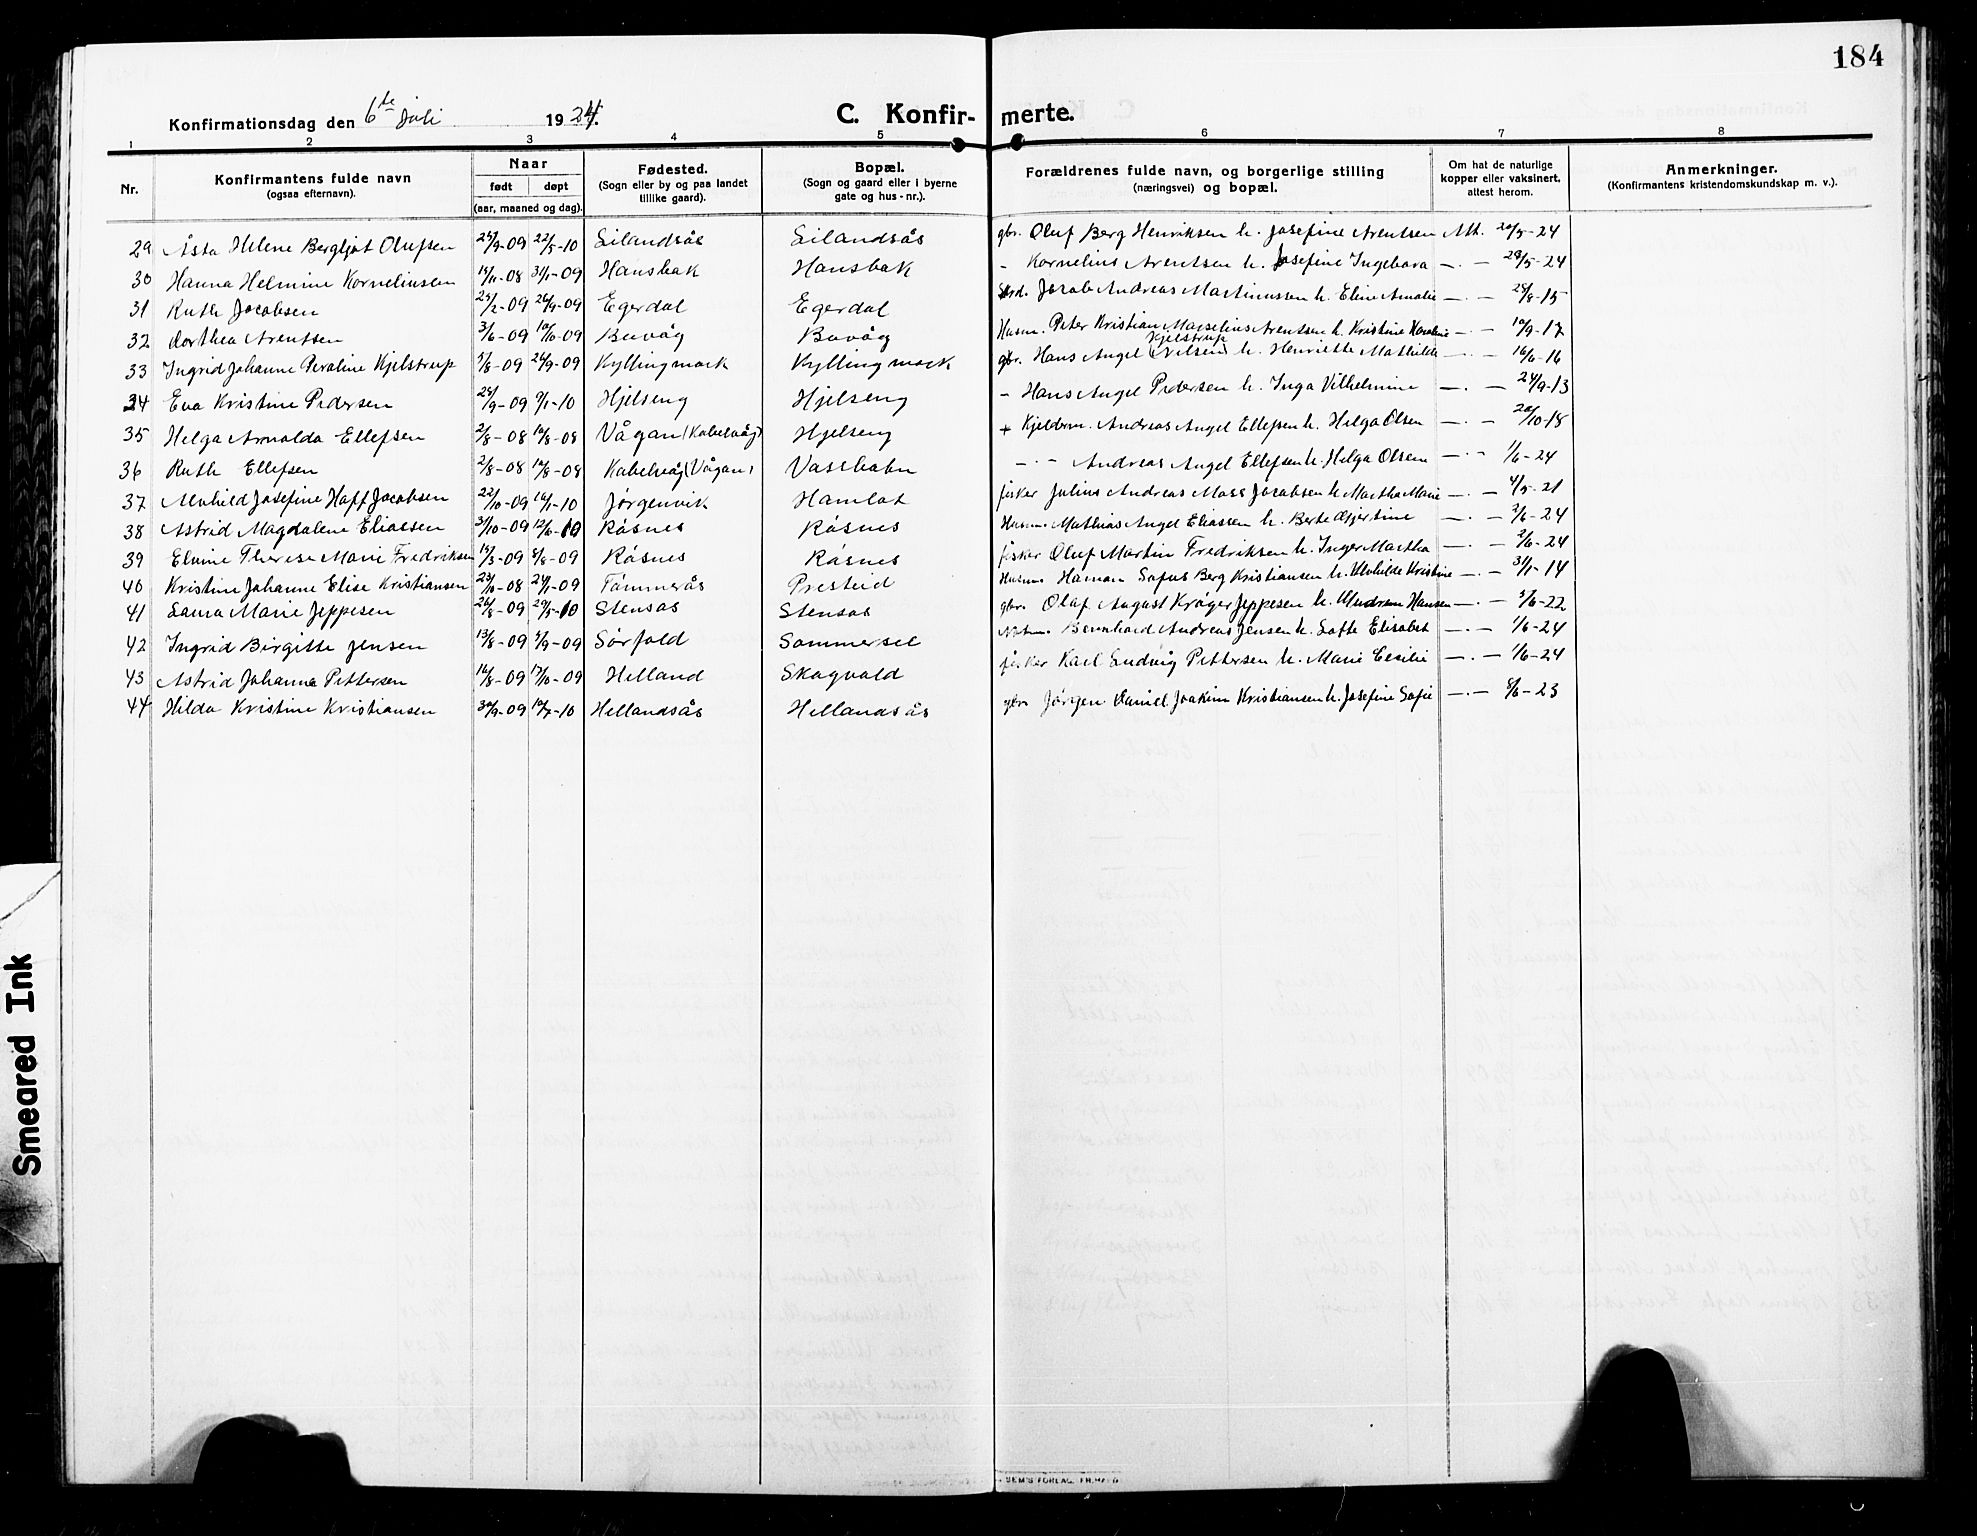 184
Konfirmationsdag den 6te Juli 1924.
C. Konfir- merte.
1 2 3 4 5 6 7 8
Nr.
Konfirmantens fulde navn
(ogsaa efternavn).
Naar
født døpt
(aar, maaned og dag).
Fødested.
(Sogn eller by og paa landet
tillike gaard).
Bopæl.
(Sogn og gaard eller i byerne
gate og hus-nr.).
Forældrenes fulde navn, og borgerlige stilling
(næringsvei) og bopæl.
Om hat de naturlige
kopper eller vaksinert,
attest herom.
Anmerkninger.
(Konfirmantens kristendomskundskap m. v.).
29 Åsta Helene Bergljot Olufsen 25/9-09 22/5-10 Eilandsås Eilandsås gbr. Oluf Berg Henriksen h. Josefine Arentsen Att. 20/5-24
30 Hanna Helmine Korneliussen 15/11-08 31/1-09 Hansbak Hansbak - Kornelius Arentsen h. Josefine Ingebora -.- 29/5-24
31 Ruth Jacobsen 25/2-09 26/9-09 Egerdal Egerdal Jacob Andreas Martinussen h. Eline Amalie -.- 25/8-15
32 Dorthea Arentsen 3/6-09 10/10-09 Buvåg Buvåg Husm. Peter Kristian Marselius Arentsen h. Kristine Karoline -.- 10/9-17
33 Ingrid Johanne Peraline Kjelstrup 1/8-09 26/9-09 Kyllingmark Kyllingmark gbr. Hans Angel Nilsen Kjelstrup h. Henriette Mathilde -.- 16/6-16
34 Eva Kristine Pedersen 25/9-09 9/1-10 Hjelseng Hjelseng - Hans Angel Pedersen h. Inga Vilhelmine -.- 24/9-13
35 Helga Arnolda Ellefsen 2/8-08 10/8-08 Vågan (Kabelvåg) Hjelseng + Andreas Angel Ellefsen h. Helga Olsen -.- 20/10-18
36 Ruth Ellefsen 2/8-08 10/8-08 Kabelvåg (Vågan) Vassbakn -.- Andreas Angel Ellefsen h. Helga Olsen -.- 1/6-24
37 Alvhild Josefine Haff Jacobsen 22/10-09 16/1-10 Jørgenvik Hamlot fisker Julius Andreas Moss Jacobsen h. Martha Marie -.- 4/5-21
38 Astrid Magdalene Eliassen 31/10-09 12/6-10 Råsnes Råsnes Husm. Mathias Angel Eliassen h. Berte Gjertine -.- 2/6-24
39 Elvine Therese Marie Fredriksen 15/3-09 8/8-09 Råsnes Råsnes fisker Oluf Martin Fredriksen h. Inger Martha -.- 2/6-24
40 Kristine Johanne Elise Kristiansen 23/10-08 24/1-09 Tømmerås Presteid Husm. Haman Sofus Berg Kristiansen h. Alvhilde Kristine -.- 31/1-14
41 Laura Marie Jeppesen 26/8-09 29/5-10 Stensås Stensås gbr. Olaf August Krøger Jeppesen h. Hansen -.- 1/6-22
42 Ingrid Birgitte Jensen 13/8-09 5/9-09 Sørfold Sommersel Bernhard Andreas Jensen h. Lotte Elisabet -.- 1/6-24
43 Astrid Johanna Pettersen 16/8-09 17/10-09 Helland Skogvold fisker Karl Ludvig Pettersen h. Marie Cecilie -.- 1/6-24
44 Hilda Kristine Kristiansen 30/9-09 10/7-10 Hellandsås Hellandsås gbr. Jørgen Daniel Joakim Kristiansen h. Josefine Sofie -.- 6/6-23
Smeared Ink
SEM'S FORLAG, FR.HALD